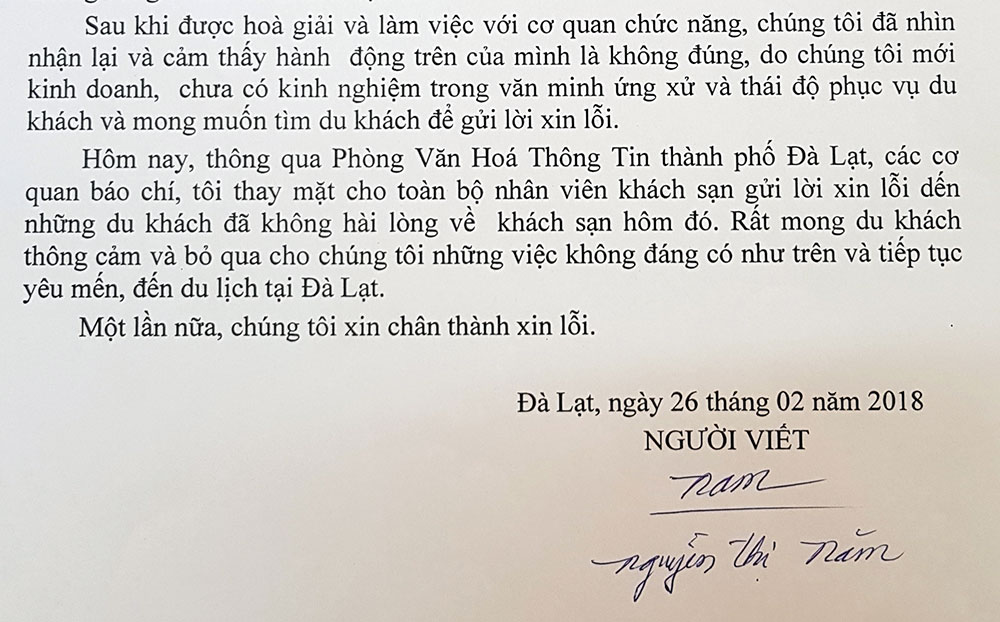 Sau khi được hoà giải và làm việc với cơ quan chức năng, chúng tôi đã nhìn
nhận lại và cảm thấy hành động trên của mình là không đúng, do chúng tôi mới
kinh doanh, chưa có kinh nghiệm trong văn minh ứng xử và thái độ phục vụ du
khách và mong muốn tìm du khách để gửi lời xin lỗi.
Hôm nay, thông qua Phòng Văn Hoá Thông Tin thành phố Đà Lạt, các cơ
quan báo chí, tôi thay mặt cho toàn bộ nhân viên khách sạn gửi lời xin lỗi dến
những du khách đã không hài lòng về khách sạn hôm đó. Rất mong du khách
thông cảm và bỏ qua cho chúng tôi những việc không đáng có như trên và tiếp tục
yêu mến, đến du lịch tại Đà Lạt.
Một lần nữa, chúng tôi xin chân thành xin lỗi.
Đà Lạt, ngày 26 tháng 02 năm 2018
NGƯỜI VIẾT
nam
nguyễn thị năm